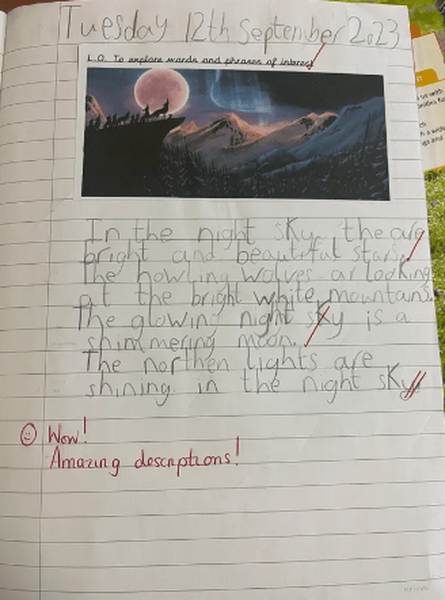 Tuesday 12th September 2023
L.O. To explore words and phrases of interest
In the night sky the are
bright and beautiful stars.
The howling wolves ar looking
at the bright white mountains.
The glowing night sky is a
shimmering moon.
The northen lights are
shining in the night sky
Wow!
Amazing descriptions!